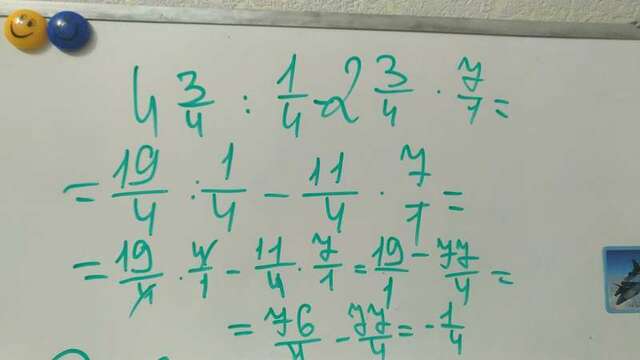 4 3/4 : 1/4 - 2 3/4 · 7/7 =
= 19/4 : 1/4 - 11/4 · 7/1 =
= 19/4 · 4/1 - 11/4 · 7/1 = 19/1 - 77/4 =
= 76/4 - 77/4 = - 1/4